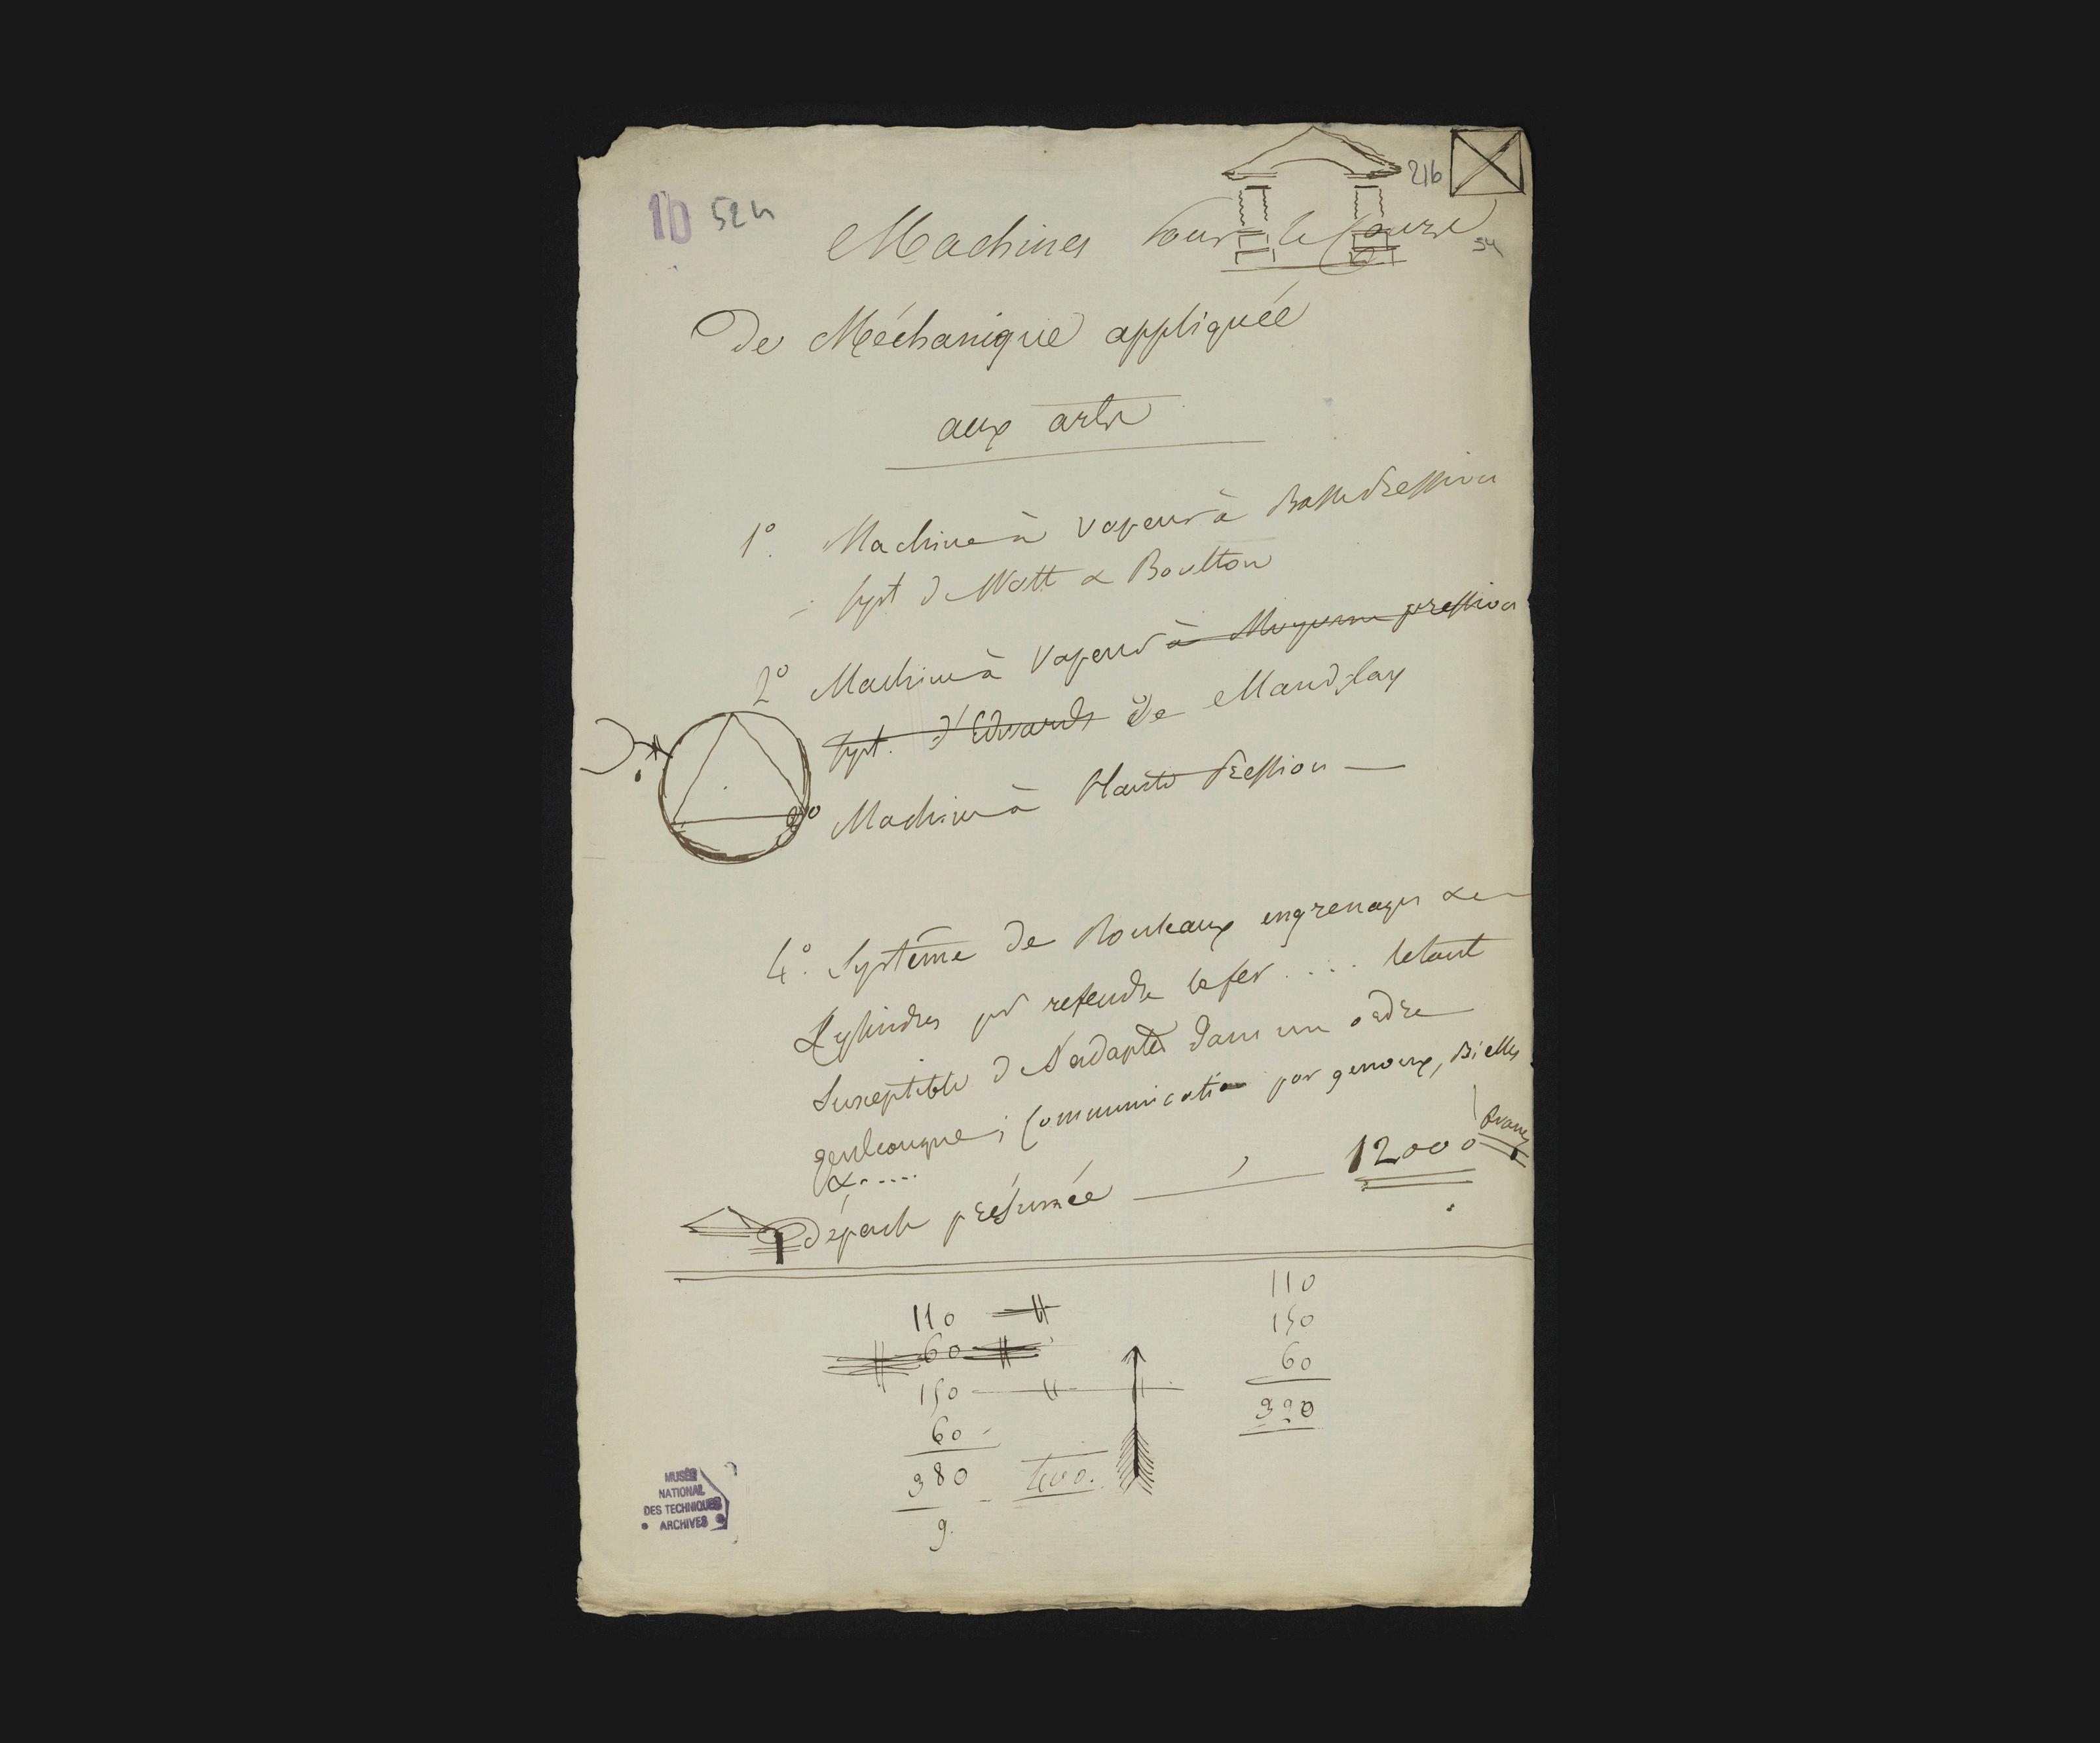 10 52 216
Machines Pour le Cours 54
De Méchanique appliquée
aux arts
1º. Machine à Vapeur à Basse Pression
Syst d Watt & Boulton
2º Machine à Vapeur à Moyenne pression
Syst. d'Edwards De Maudslay
3º Machine à Haute Pression —
4º. Système de Rouleaux engrenages &c
Cylindres pr refendre le fer .... le tout
Susceptible d S'adapter dans un ordre
quelconque; Communication par genoux, Bielles
&.....
Dépense présumée — 12000 Francs
110 110
60 150
150 60
60 320
380 400.
9.
MUSÉE
NATIONAL
DES TECHNIQUES
• ARCHIVES •